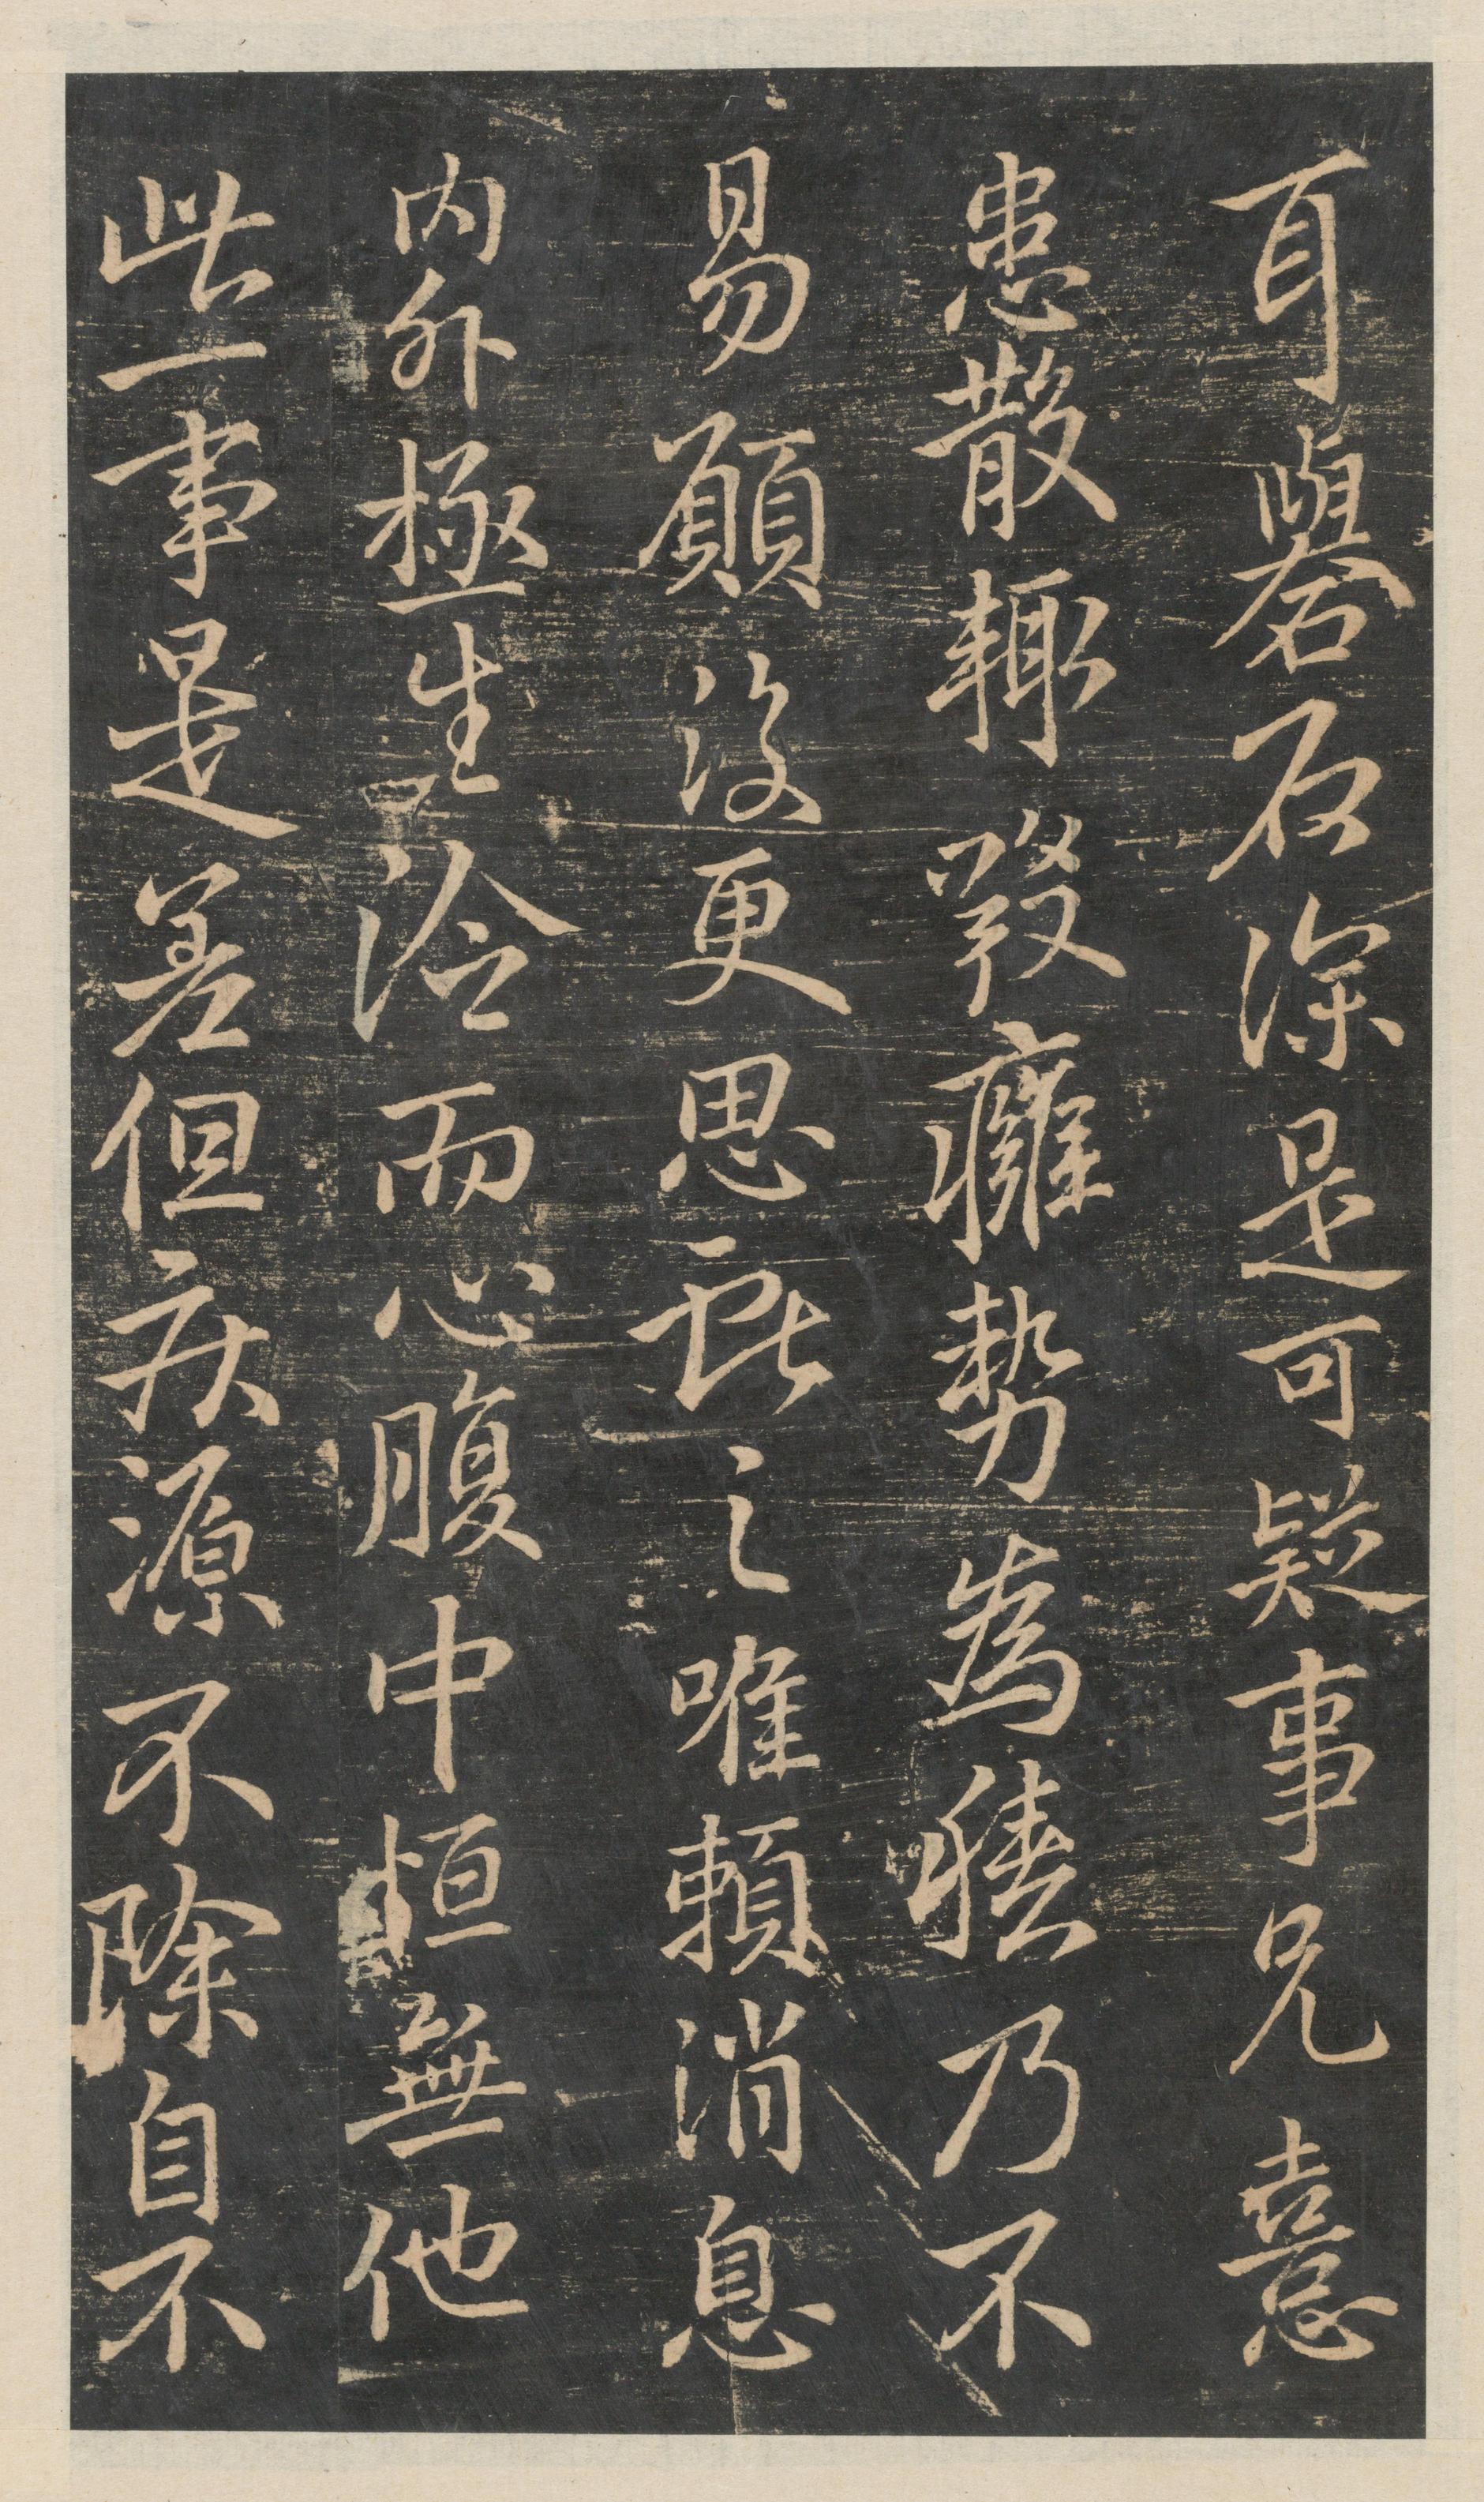 耳礜石深是可疑事兄憙
患散輒發癰勢為積乃不
易願復更思獻之唯賴消息
內外極生冷而心腹中恒無他
此一事是差但疾源不除自不